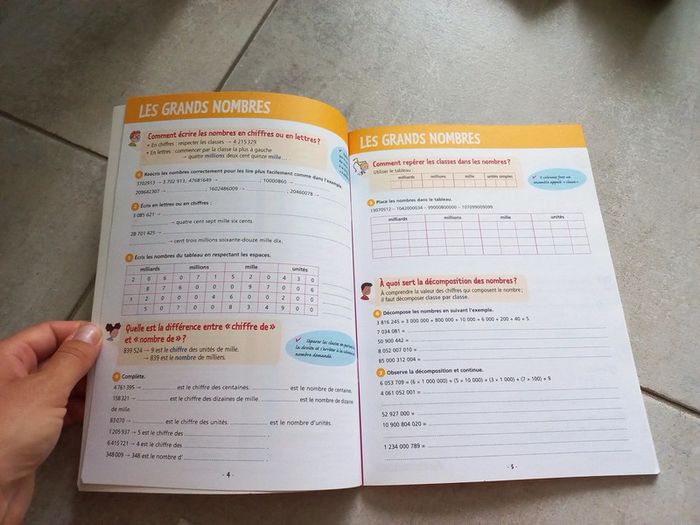 LES GRANDS NOMBRES
Comment écrire les nombres en chiffres ou en lettres ?
• En chiffres : respecter les classes → 4 215 329
• En lettres : commencer par la classe la plus à gauche
→ quatre millions deux cent quinze mille ...
1 Réécris les nombres correctement pour les lire plus facilement comme dans l'exemple.
3702913 → 3 702 913; 47681649 → ; 10000860 →
209642307 → ; 1602486009 → ; 20460078 →
2 Écris en lettres ou en chiffres :
3 085 621 →
→ quatre cent sept mille six cents.
28 701 425 →
→ cent trois millions soixante-douze mille dix.
3 Écris les nombres du tableau en respectant les espaces.
milliards millions mille unités
2 0 6 0 7 1 5 2 0 4 3 0
8 7 6 0 0 0 9 7 0 0 6
Quelle est la différence entre « chiffre de »
et « nombre de » ?
839 524 → 9 est le chiffre des unités de mille.
→ 839 est le nombre de milliers.
4 Complète.
4 761 395 → est le chiffre des centaines. est le nombre de centaines.
158 321 → est le chiffre des dizaines de mille. est le nombre de dizaines
de mille.
83 070 → est le chiffre des unités est le nombre d'unités
1 205 937 → 5 est le chiffre des
6 415 721 → 4 est le chiffre des
348 009 → 348 est le nombre d'
- 4 -
LES GRANDS NOMBRES
Comment repérer les classes dans les nombres ?
Utiliser le tableau
milliards millions mille unités simples
5 Place les nombres dans le tableau.
13070512 – 1042000034 – 99000800000 – 107099009099
milliards millions mille unités
À quoi sert la décomposition des nombres ?
À comprendre la valeur des chiffres qui composent le nombre ;
il faut décomposer classe par classe.
6 Décompose les nombres en suivant l'exemple.
3 816 245 = 3 000 000 + 800 000 + 10 000 + 6 000 + 200 + 40 + 5.
7 034 081 =
50 900 442 =
8 052 007 010 =
85 000 312 004 =
7 Observe la décomposition et continue.
6 053 709 = (6 × 1 000 000) + (5 × 10 000) + (3 × 1 000) + (7 × 100) + 9
4 061 052 001 =
52 927 000 =
10 900 804 020 =
1 234 000 789 =
- 5 -